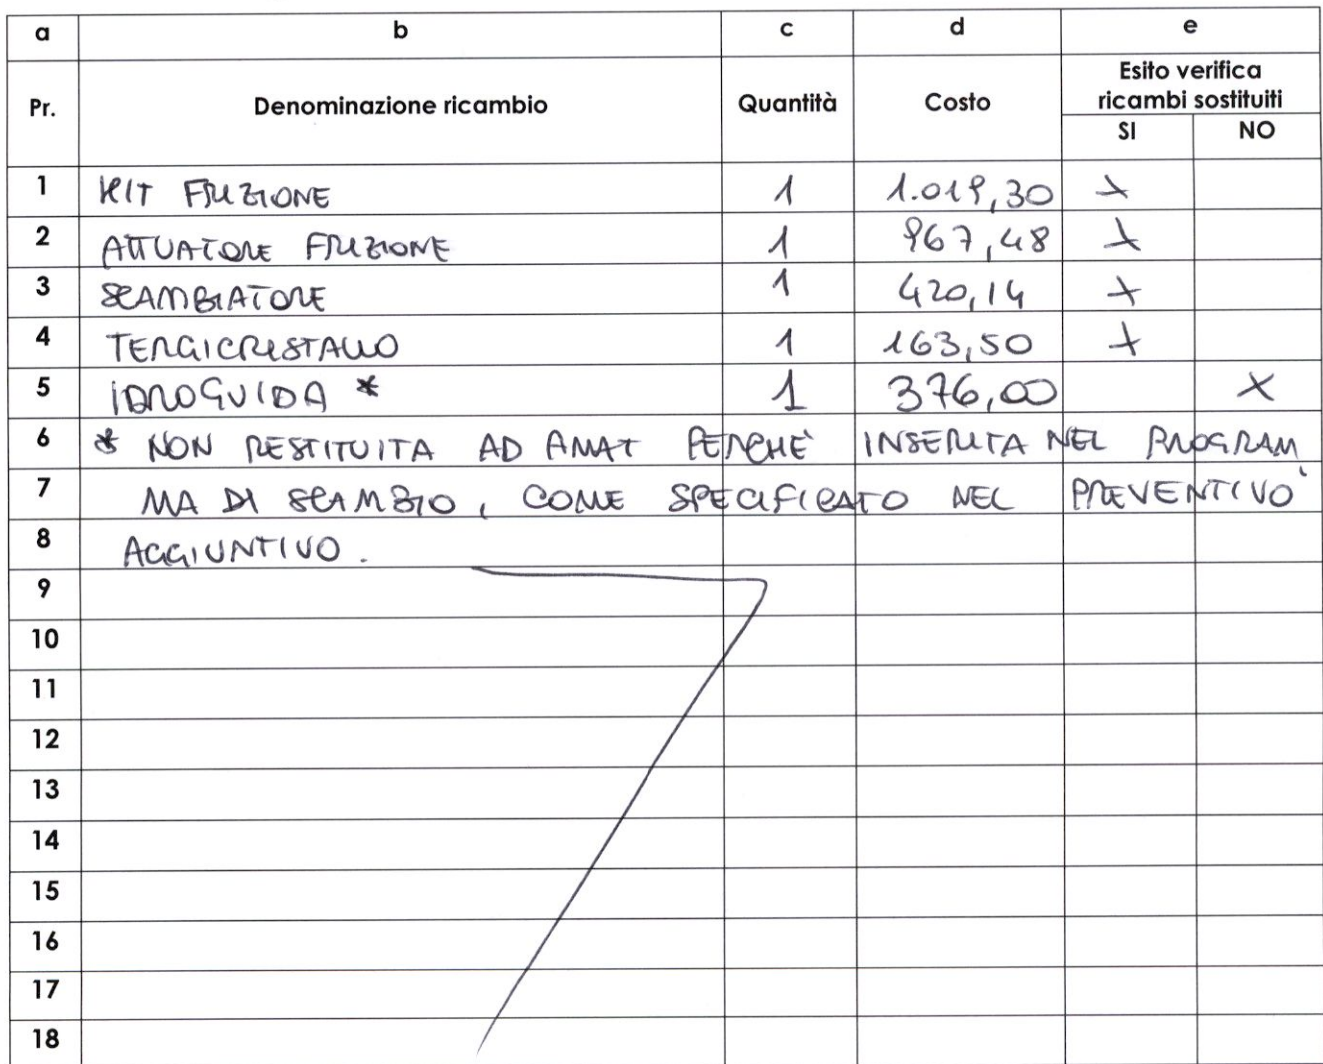 a b c d e
Pr. Denominazione ricambio Quantità Costo Esito verifica ricambi sostituiti
SI NO
1 KIT FRIZIONE 1 1.019,30 X
2 ATTUATORE FRIZIONE 1 967,48 X
3 SCAMBIATORE 1 420,14 X
4 TERGICRISTALLO 1 163,50 X
5 IDROGUIDA * 1 376,00 X
6 * NON RESTITUITA AD AMAT PERCHÈ INSERITA NEL PROGRAM
7 MA DI SCAMBIO, COME SPECIFICATO NEL PREVENTIVO
8 AGGIUNTIVO.
9
10
11
12
13
14
15
16
17
18